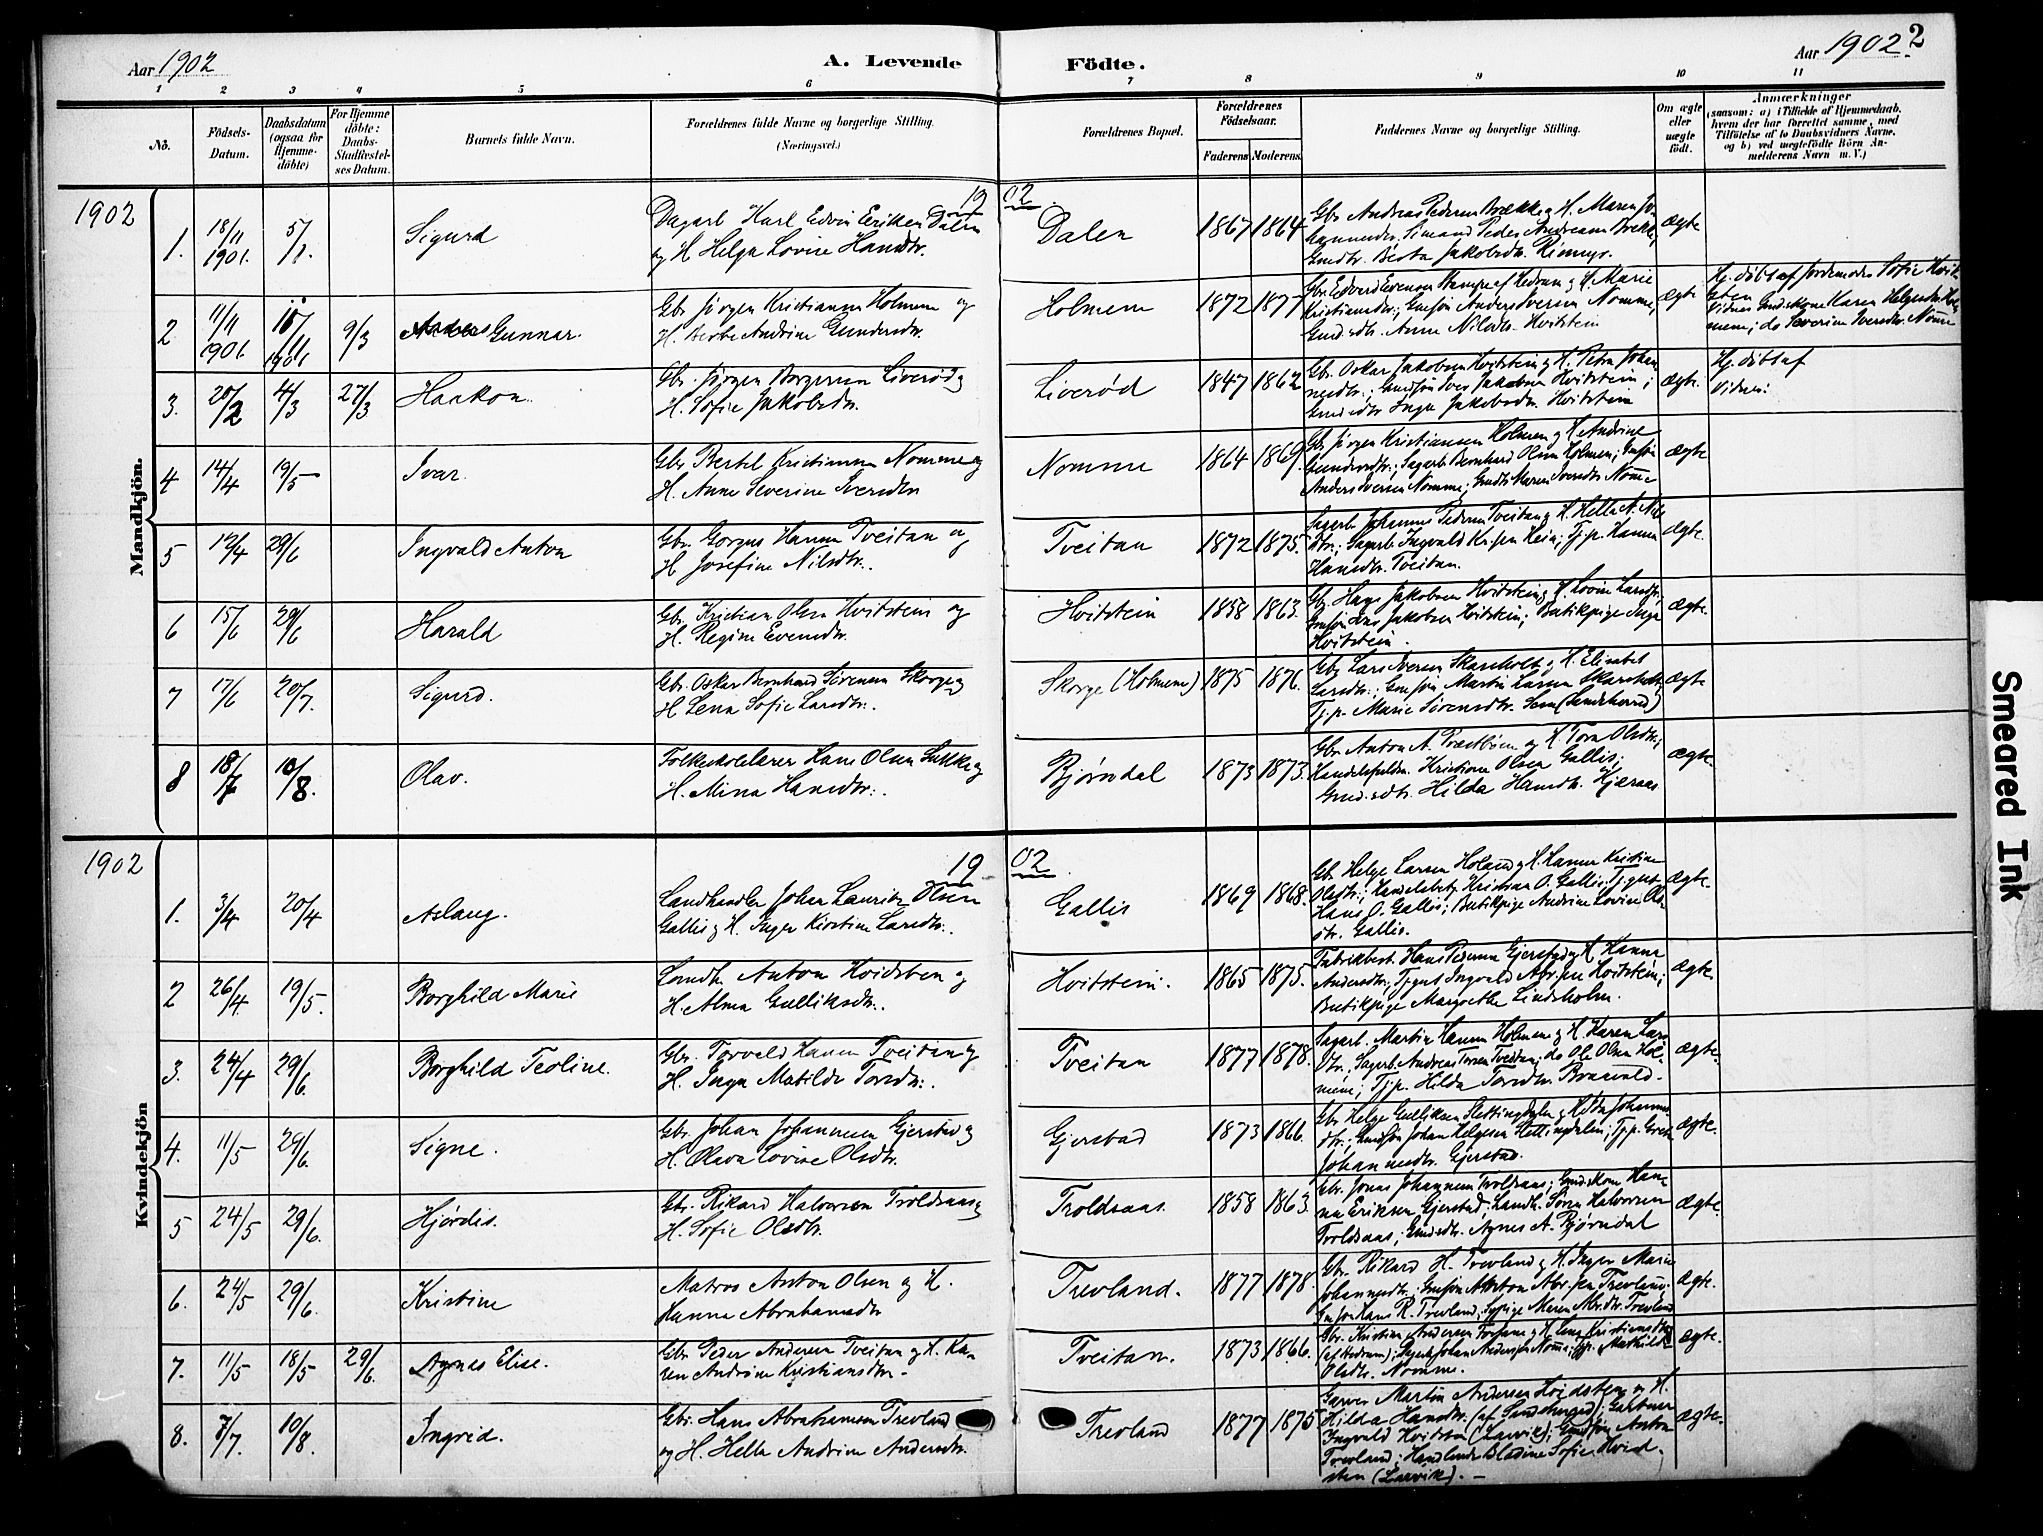 Aar 1902
A. Levende Födte.
Aar 1902. 2
1 2 3 4 5 6 7 8 9 10 11
No.
Födsels-Datum.
Daabsdatum (ogsaa for Hjemme-döbte)
For Hjemme döbte: Daabs-Stadfæstel-ses Datum.
Barnets fulde Navn.
Forældrenes fulde Navne og borgerlige Stilling.
(Næringsvei.)
Forældrenes Bopæl.
Forældrenes Födselsaar.
Faderens Moderens.
Faddernes Navne og borgerlige Stilling.
Om ægte eller uægte födt.
Anmærkninger
(saasom: a) i Tilfælde af Hjemmedaab, hvem der har forrettet samme, med Tilföielse af to Daabsvidners Navne, og b) ved uægtefödte Börn An-melderens Navn m. V.)
Mandkjön.
1902
1902
1. 18/11 1901. 5/1. Sigurd
Dagarb Karl Edvin Eriksen Dalen
og H. Helga Lovise Hansdtr.
Dalen 1867 1864
Gbr Andreas Pedersen Brække og H. Maren Jo-
hannesdtr.
Ægte
2 11/11 1901. 9/3 Gunnar.
Gbr Jørgen Kristiansen Holmene og
H. Andrine Gundersdtr.
Holmene 1872 1877
Kristiansdtr.; Gmsøn Anders Iversen Nomme;
Gmd.sdtr. Anne Nilsdtr. Hvitstein
Ægte
3. 20/2 4/3 27/3 Haakon.
Gbr. Jørgen Borgersen Liverød og
H. Sofie Jakobsdtr.
Liverød 1847 1862
Gbr. Oskar Jakobsen Hvitstein og H. Petra Johan-
nesdtr.; Gmdsøn Iver Jakobsen Hvitstein;
Gmdsdtr Inga Jakobsdtr. Hvitstein
Ægte.
Hj. döbt af
Vidner:
4 14/4 19/5 Ivar.
Gbr Bertel Kristiansen Nomme og
H. Anne Severine Iversdtr
Nomme 1864 1869.
Gbr Jørgen Kristiansen Holmene og H. Andrine
Gundersdtr.; Sagarb. Bernhard Olsen Holmen;
Anders Iversen Nomme; Maren Iversdtr Nomme
Ægte
5 29/6 Ingvald Anton
Gbr. Gorgus Hansen Tveitan og
H Josefine Nilsdtr.
Tveitan 1872 1875.
Sagarb. Johannes Pedersen Tveitan og H. Helle A. Nils-
dtr.; Sagarb. Ingvald Tj.p. Hanna
Hansdtr. Tveitan.
Ægte.
6 15/6 29/6 Harald
Gbr. Kristian Olsen Hvitstein og
H. Regine Evensdtr.
Hvitstein 1858 1863.
Gbr Hans Jakobsen Hvitstein og H. Lovise Larsdtr.;
Jakobsen Hvitstein; Butikpige Inga
Hvitstein.
Ægte.
7 17/6 20/7. Sigurd.
Gbr. Oskar Bernhard Sørensen Skorge og
H Lena Sofie Larsdtr.
Skorge (Holmene) 1875 1876.
Gbr Lars Iversen Skarsholt og H. Elisabet
Larsdtr.; Gmsøn Martin Larsen Skarsholt;
Tj.p. Marie Sørensdtr. Sem (Sandeherred)
Ægte
8 18/7 10/8. Olav.
Folkeskolelærer Hans Olsen og
H. Mina Hansdtr.
Bjørndal 1873 1873.
Gbr Anton A. og H. Torn Olsdtr.;
Kristian Olsen Gallis;
Gmd.sdtr. Hilda Hansdtr. Hjæraas
Ægte.
Kvindekjön
1902
1902.
1. 3/4 20/4 Aslaug.
Landhandler Johan Lauritz Olsen
Gallis og H. Inger Kirstine Larsdtr.
Gallis 1869 1868.
Gbr Helge Larsen Holand og H. Karen Kristine
Olsdtr.; Handelsbetj. Kristian O. Gallis; Tj.gut
Hans O. Gallis; Butikpige Andrine Lovise Ol-
sdtr. Gallis.
Ægte.
2 26/4. 19/5. Borghild Marie
Landh. Anton Hvidsten og
H. Alma Gulliksdtr.
Hvitstein. 1865 1875.
Fabrikbest. Hans Pedersen Gjerstad og H. Hanna
Andersdtr.; Tj.gut Ingvald Abr.sen Hvitstein;
Butikpige Margrethe Lindsholm.
Ægte.
3. 24/4 29/6 Borghild Teoline.
Gbr. Torvald Hansen Tveitan og
H. Inga Matilde Torsdtr.
Tveitan 1877 1878.
Sagarb. Martin Hansen Holmene og H. Karen Lars-
dtr.; Sagarb. Andreas Torsen Tveitan; do Ole Olsen Hol-
mene; Tj.p. Hilda Torsdtr. Braavold.
Ægte.
4. 11/5 29/6. Signe.
Gbr. Johan Johannesen Gjerstad og
H. Olava Lovise Olsdtr.
Gjerstad 1873 1866.
Gbr Helge Gulliksen Slettingdalen og H. Ida Johannes-
dtr.; Gmdsøn Johan Helgesen Slettingdalen; Tj.p. Grete
Johannesdtr. Gjerstad.
Ægte.
5 24/5 29/6. Hjørdis.
Gbr. Rikard Halvorsen Troldsaas og
H. Sofie Olsdtr.
Troldsaas. 1858 1863.
Gbr. Jonas Johannesen Troldsaas; Gmdskone Han-
na Eriksen Gjerstad; Landh. Søren Halvorsen
Troldsaas; Gmdsdtr. Agnes A. Bjørndal
Ægte.
6. 24/5 29/6. Kristine
Matros Anton Olsen og H.
Hanna Abrahamsdtr
Trevland. 1877 1878.
Gbr. Rikard H. Trevland og H. Inger Marie
Johannesdtr.; Gmsøn Anton Abr.sen Trevland;
Gmsøn Hans R. Trevland; Sypige Maren Abr.dtr. Trevland
Ægte.
7. 11/5 18/5 29/6. Agnes Elise.
Gbr Peder Andersen Tveitan og H. Ka-
ren Andrine Kristiansdtr.
Tveitan. 1873 1866.
Gbr. Kristian Andersen og H. Lena Kristiansdtr.
(af Hedrum); Johan Andersen Nomme; Tj.p. Mathilde
Olsdtr. Nomme.
Ægte.
8. 7/7. 10/8. Ingrid.
Gbr. Hans Abrahamsen Trevland
og H. Helle Andrine Andersdtr.
Trevland 1877 1875
Garver Martin Andersen Hvidsten og H.
Hilda Hansdtr. (af Sandeherred); Gartner
Ingvald Hvitsten (Larvik); Gmdsøn Anton
Trevland; Handlende Bladine Sofie Hvid-
sten (Larvik).
Ægte.
Smeared Ink